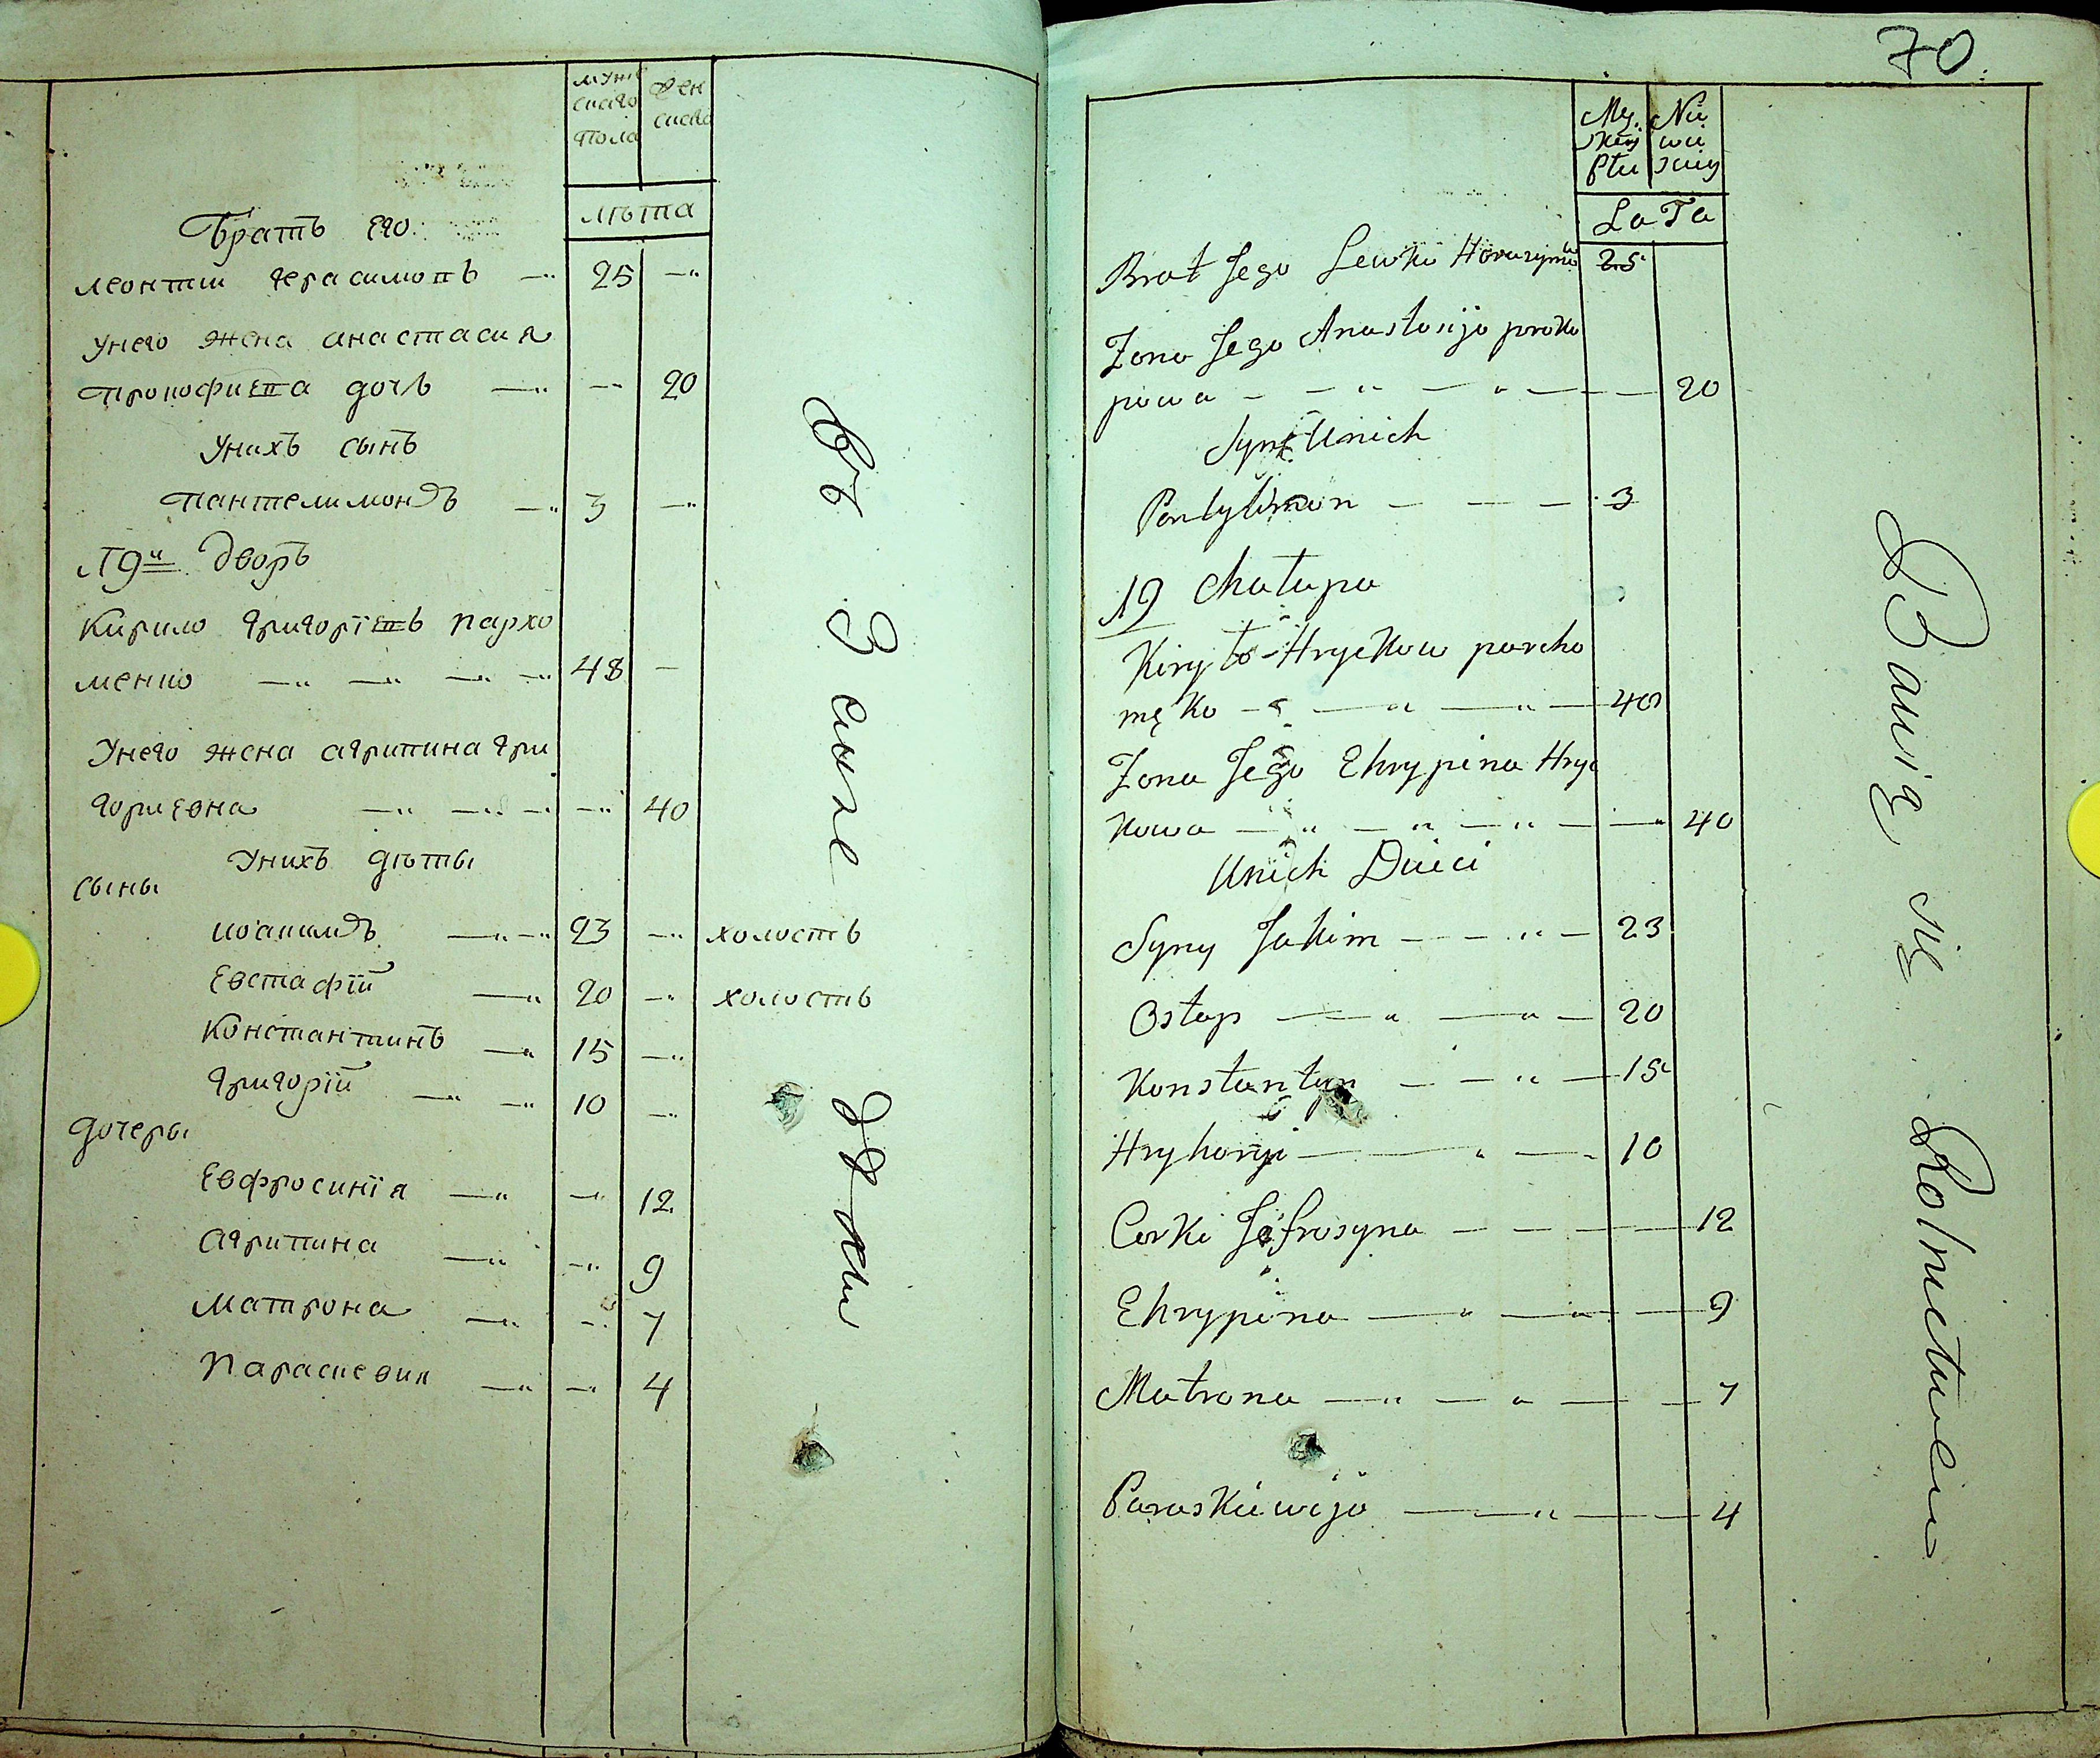 мужескаго
пола
женскаго
лѣта
Братъ его
леонтии герасимовъ 25
унего жена анастасия
прокофиева дочь 20
унихъ сынъ
пантелимонъ 3
19й дворъ
Кирило григорїевъ пархо
менко 48
Унего жена агрипина гри
гориевна 40
унихъ дѣты
сыны
иоакимъ 23 холостъ
Евстафїй 20 холостъ
Константинъ 15
григорїй 10
дочеры
Евфросинїя 12
агрипина 9
матрона 7
Параскевия 4
70
Męskiej
Płci
Niewieściej
LaTa
Brat Jego Lewko Harasymów 25
Zona Jego Anastasija proko
powa 20
Syn Unich
Pantylimon 3
19 Chałupa
Kiryło Hryckow parcho
męko 48
Zona Jego Ehrypina Hryc
kowa 40
Unich Dzieci
Syny Jakim 23
Ostap 20
Konstantyn 15
Hryhoryi 10
Corki Jefrosyna 12
Ehrypina 9
Matrona 7
Paraskiewija 4
Bawią się Rolnictwem